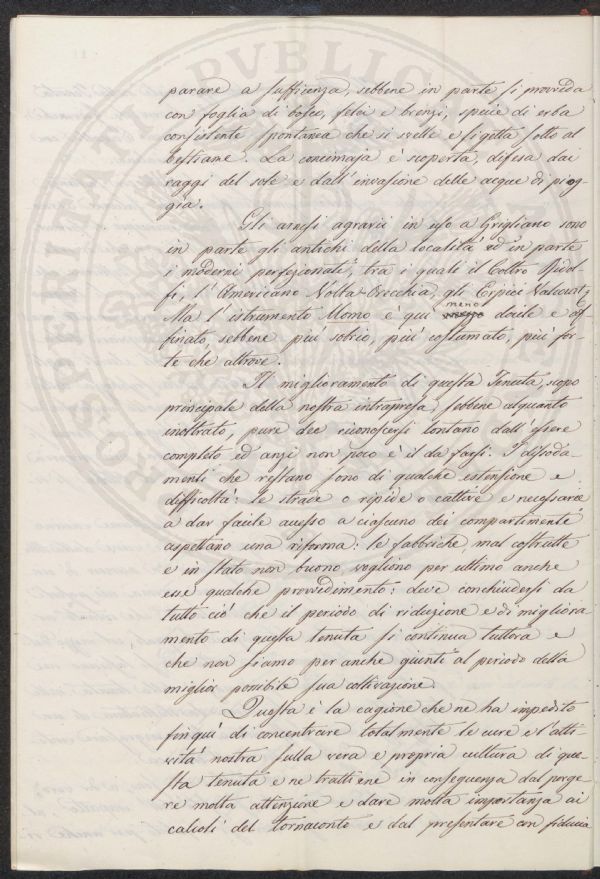 parare a sufficenza, sebbene in parte si provveda
con foglia di bosco, felci e brenzi, specie di erba
consistente spontanea che si svelle e si getta sotto al
bestiame. La concimaja è scoperta, difesa dai
raggi del sole e dall'invasione delle acque di piog-
gia.
Gli arnesi agrarii in uso a Grigliano sono
in parte gli antichi della località ed in parte
i moderni perfezionati, tra i quali il Coltro Ridol-
fi, l'Americano Volta-Orecchia, gli Erpici Valcourt.
menos
Ma l'istrumento Uomo è qui docile e af-
finato, sebbene più sobrio, più costumato, più for-
te che altrove.
Il miglioramento di questa Tenuta, scopo
principale della nostra intrapresa, sebbene alquanto
inoltrato, pure dee riconoscersi lontano dall'essere
completo ed anzi non poco è il da farsi. I dissoda-
menti che restano sono di qualche estensione e
difficoltà: le strade o ripide o cattive e necessarie
a dar facile accesso a ciascuno dei compartimenti
aspettano una riforma: le fabbriche, mal costrutte
e in stato non buono, vogliono per ultimo anche
esse qualche provvedimento: deve conchiudersi da
tutto ciò che il periodo di riduzione e di migliora
mento di questa tenuta si continua tuttora e
che non siamo per anche giunti al periodo della
miglior possibile sua coltivazione.
Questa è la cagione che ne ha impedito
finquì di concentrare totalmente le cure e l'atti-
vità nostra sulla vera e propria cultura di que-
sta tenuta e ne trattiene in conseguenza dal porge-
re molta attenzione e dare molta importanza ai
calcoli del tornaconto e dal presentare con fiducia
PROSPERITATI PVBLICAE